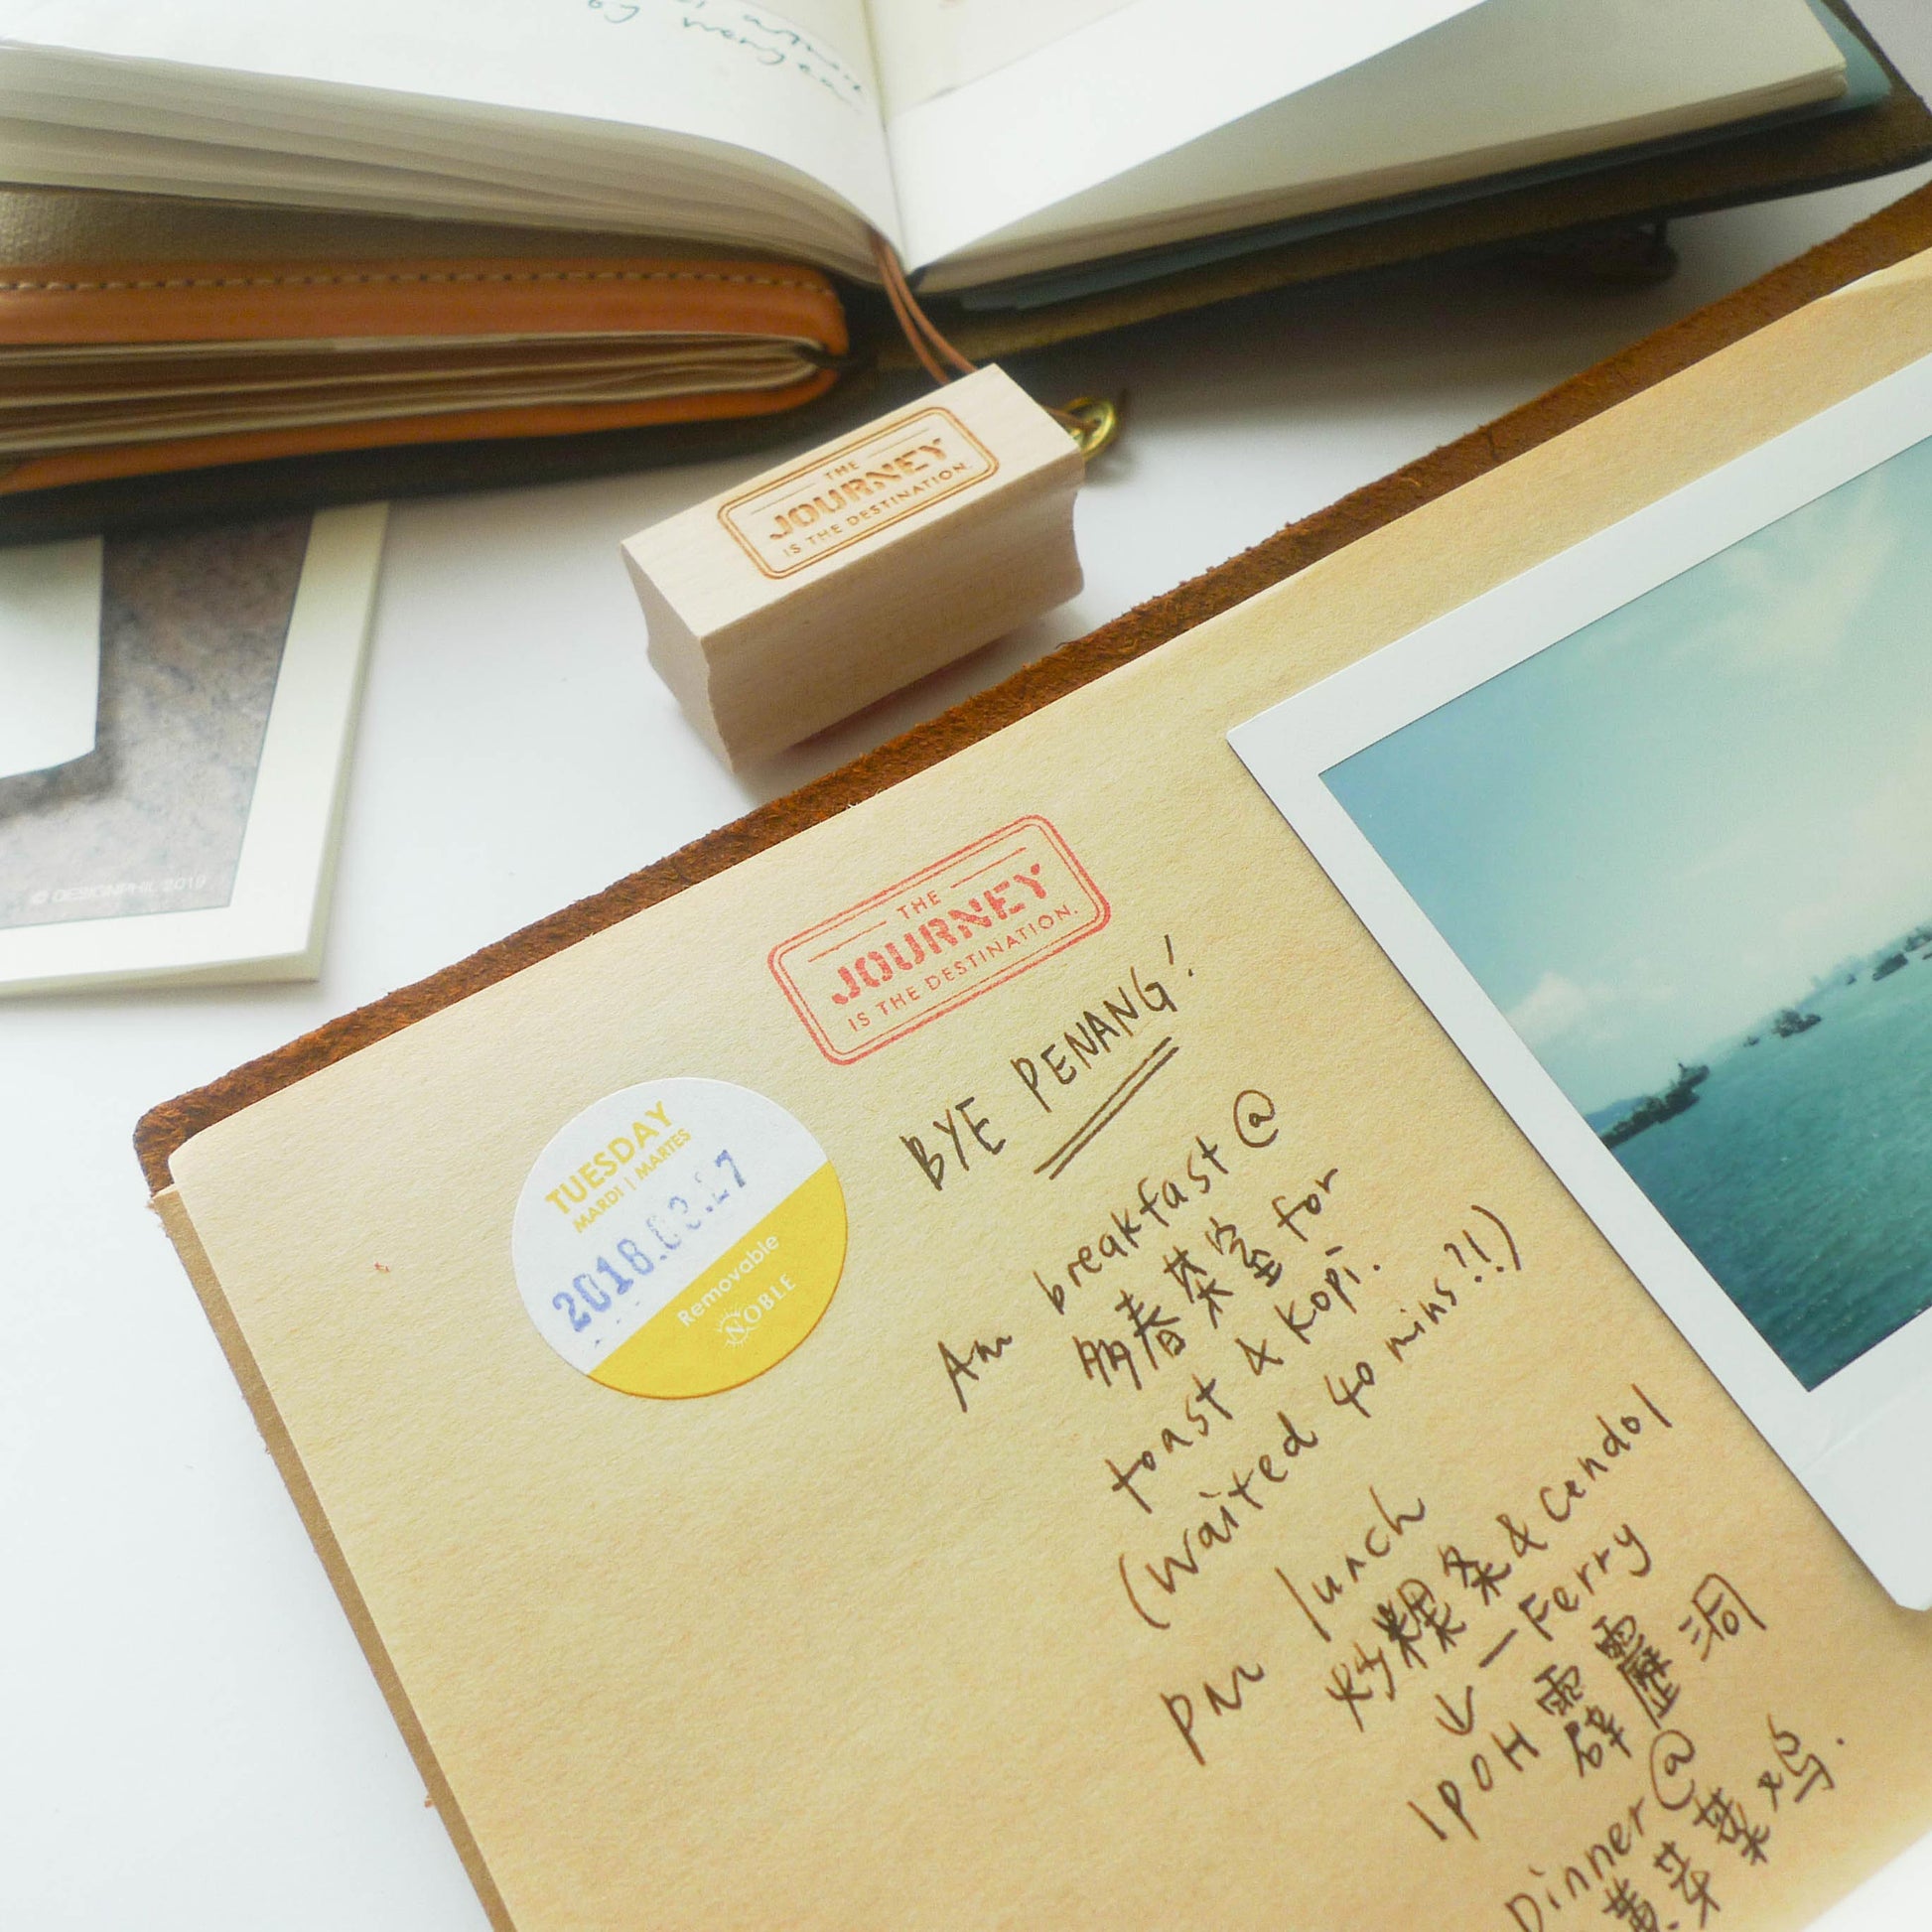 THE
JOURNEY
IS THE DESTINATION.
© DESIGNPHIL 2019
THE
JOURNEY
IS THE DESTINATION.
TUESDAY
MARDI | MARTES
2018.03.27
Removable
NOBLE
BYE PENANG!
Am breakfast @
多春茶室 for
toast & kopi.
(waited 40 mins?!!)
pm lunch
炒粿条 & cendol
↓ – Ferry
IPOH 霹靂洞
Dinner @
黄芽菜鸡.